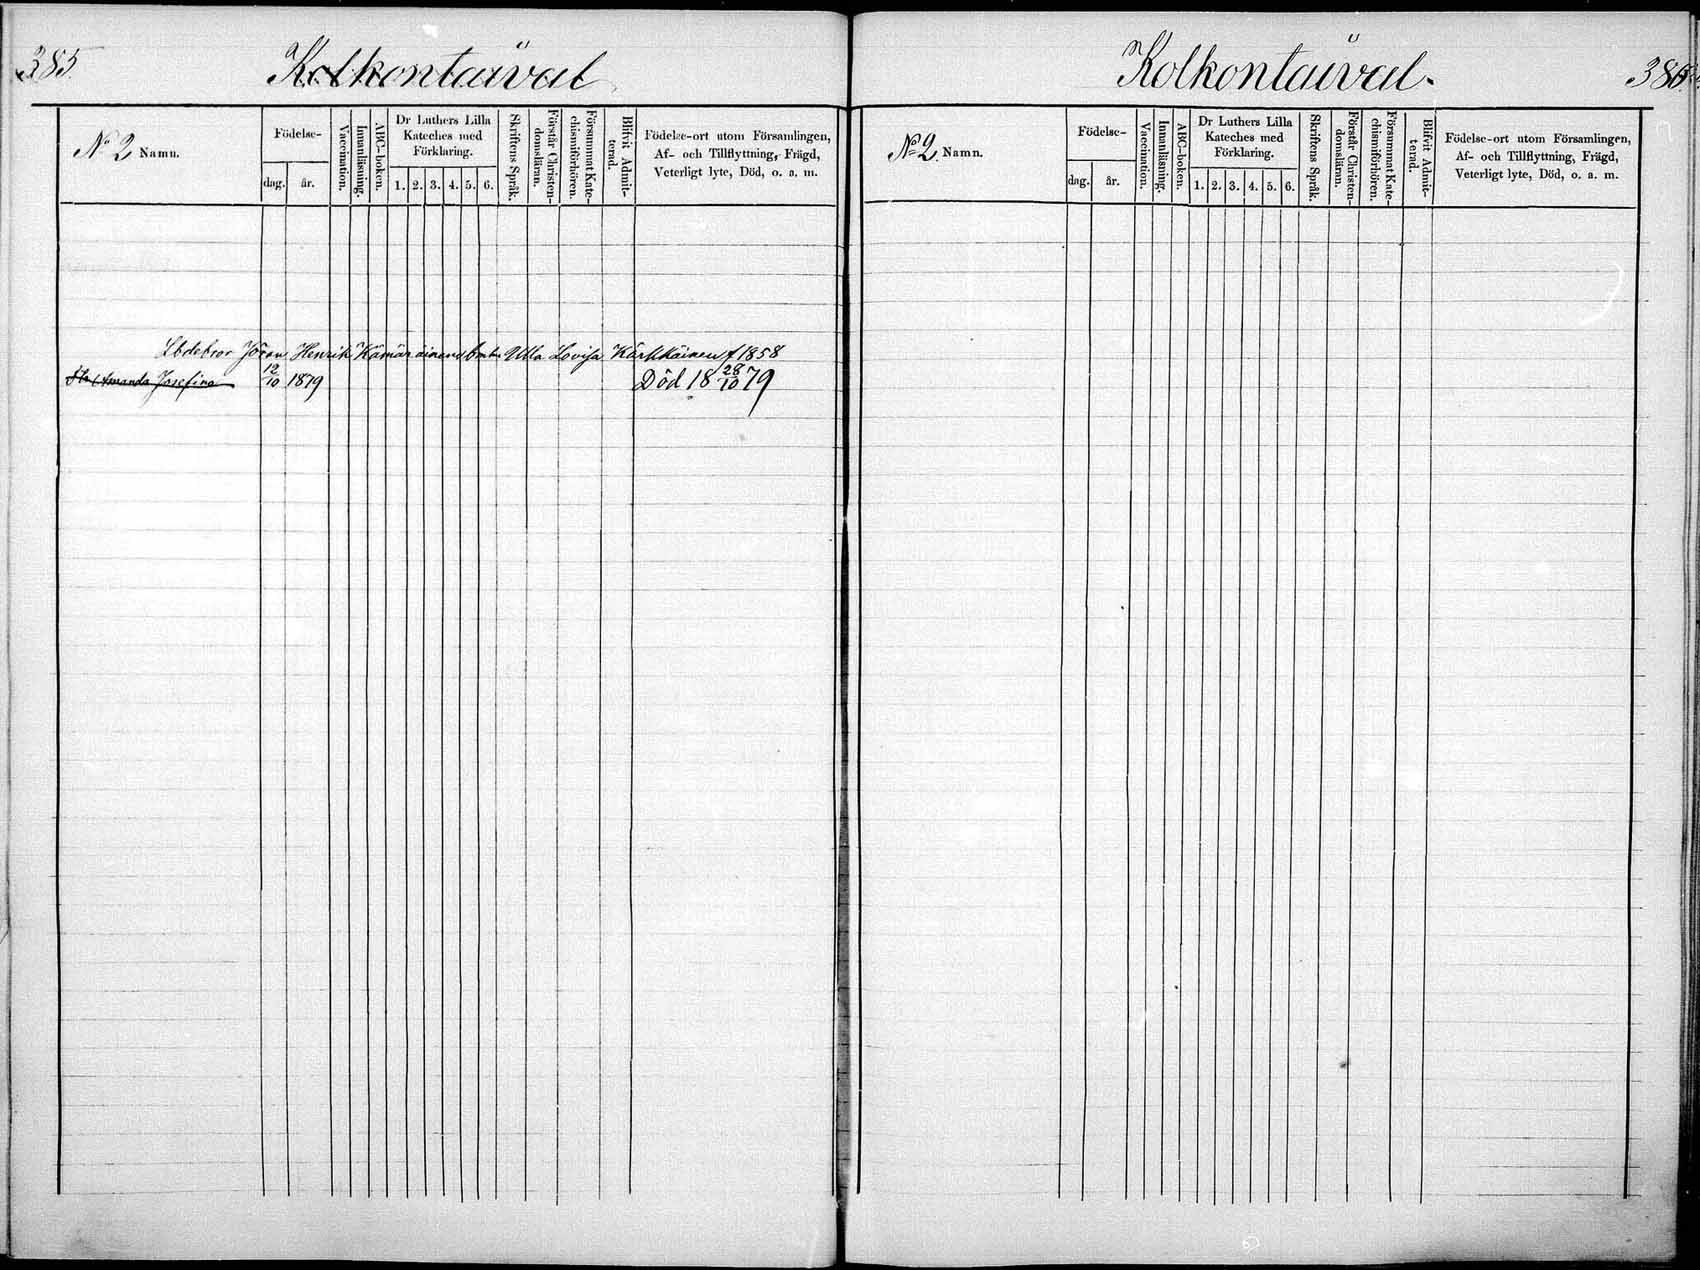 385. Kolkontaival
No 2 Namn. Födelse- dag. år. Vaccination. Innanläsning. ABC-boken. Dr Luthers Lilla Kateches med Förklaring. 1. 2. 3. 4. 5. 6. Skriftens Språk. Förstår Christen-domsläran. Försummat Kate-chismiförhören. Blifvit Admit-terad. Födelse-ort utom Församlingen, Af- och Tillflyttning, Frägd, Veterligt lyte, Död, o. a. m.
Jöran Henrik Kämäräinens Ulla Lovisa Kärkkäinen f 1858
Amanda Josefina 12/10 1879 Död 18 28/10 79
Kolkontaival. 386.
No 2. Namn. Födelse- dag. år. Vaccination. Innanläsning. ABC-boken. Dr Luthers Lilla Kateches med Förklaring. 1. 2. 3. 4. 5. 6. Skriftens Språk. Förstår Christen-domsläran. Försummat Kate-chismiförhören. Blifvit Admit-terad. Födelse-ort utom Församlingen, Af- och Tillflyttning, Frägd, Veterligt lyte, Död, o. a. m.